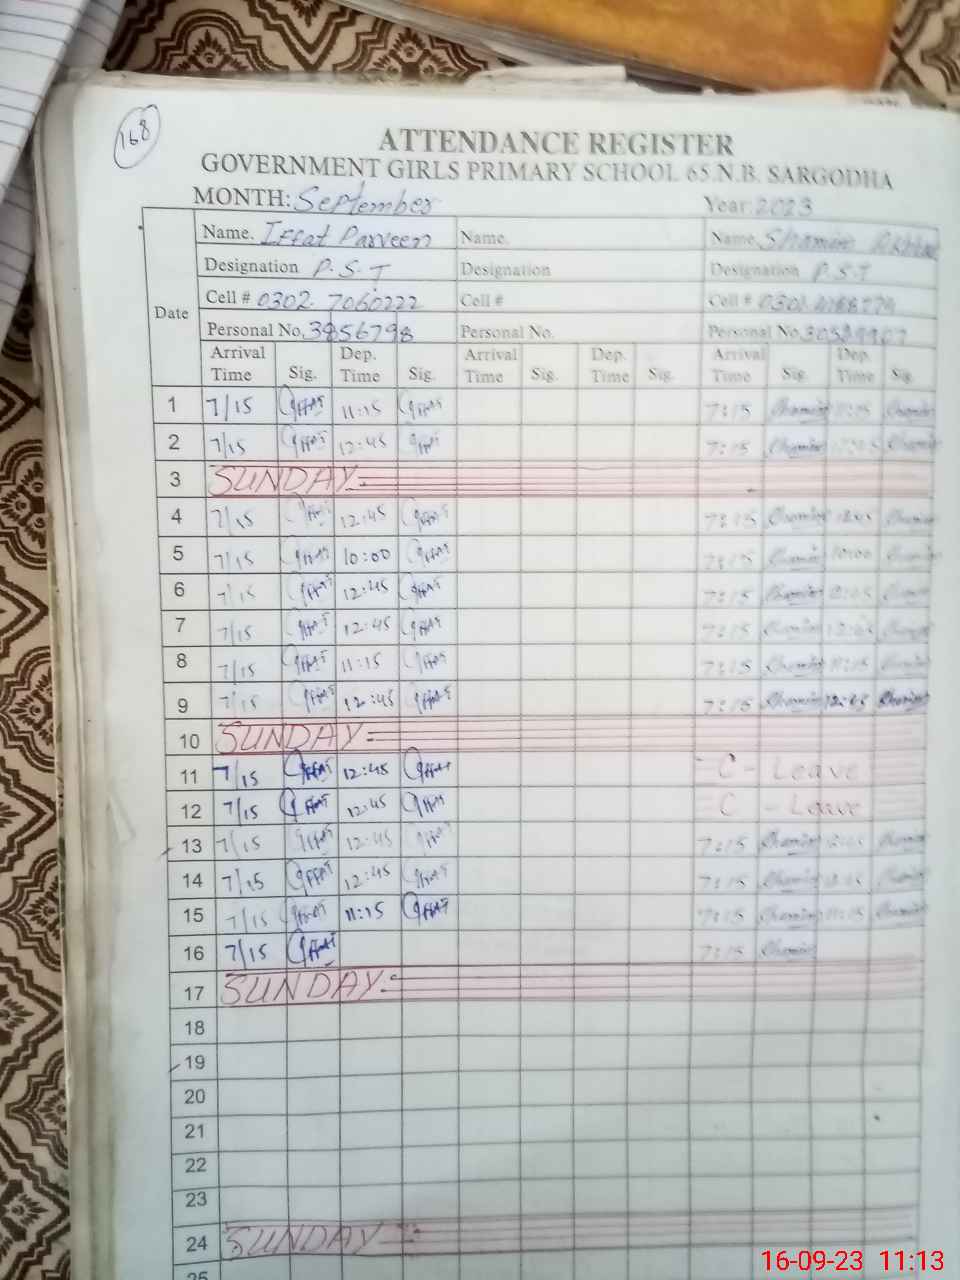 168
ATTENDANCE REGISTER
GOVERNMENT GIRLS PRIMARY SCHOOL 65.N.B. SARGODHA
MONTH: September Year: 2023
Date
Name. Iffat Parveen Name. Name. Shamim
Designation P.S.T Designation Designation P.S.T
Cell # 0302-7060222 Cell # Cell #
Personal No. 3856798 Personal No. Personal No.
Arrival Time Sig. Dep. Time Sig. Arrival Time Sig. Dep. Time Sig. Arrival Time Sig. Dep. Time Sig.
1 7/15 Iffat 11:15 Iffat 7:15 Shamim 11:15 Shamim
2 7/15 Iffat 12:45 Iffat 7:15 Shamim Shamim
3 SUNDAY
4 7/15 Iffat 12:45 Iffat 7:15 Shamim 12:45 Shamim
5 7/15 Iffat 10:00 Iffat 7:15 Shamim 10:00 Shamim
6 7/15 Iffat 12:45 Iffat 7:15 Shamim 12:45 Shamim
7 7/15 Iffat 12:45 Iffat 7:15 Shamim 12:45 Shamim
8 7/15 Iffat 11:15 Iffat 7:15 Shamim 11:15 Shamim
9 7/15 Iffat 12:45 Iffat 7:15 Shamim 12:45 Shamim
10 SUNDAY
11 7/15 Iffat 12:45 Iffat C - Leave
12 7/15 Iffat 12:45 Iffat C - Leave
13 7/15 Iffat 12:45 Iffat 7:15 Shamim 12:45 Shamim
14 7/15 Iffat 12:45 Iffat 7:15 Shamim 12:45 Shamim
15 7/15 Iffat 11:15 Iffat 7:15 Shamim 11:15 Shamim
16 7/15 Iffat 7:15 Shamim
17 SUNDAY
18
19
20
21
22
23
24 SUNDAY
25
16-09-23 11:13